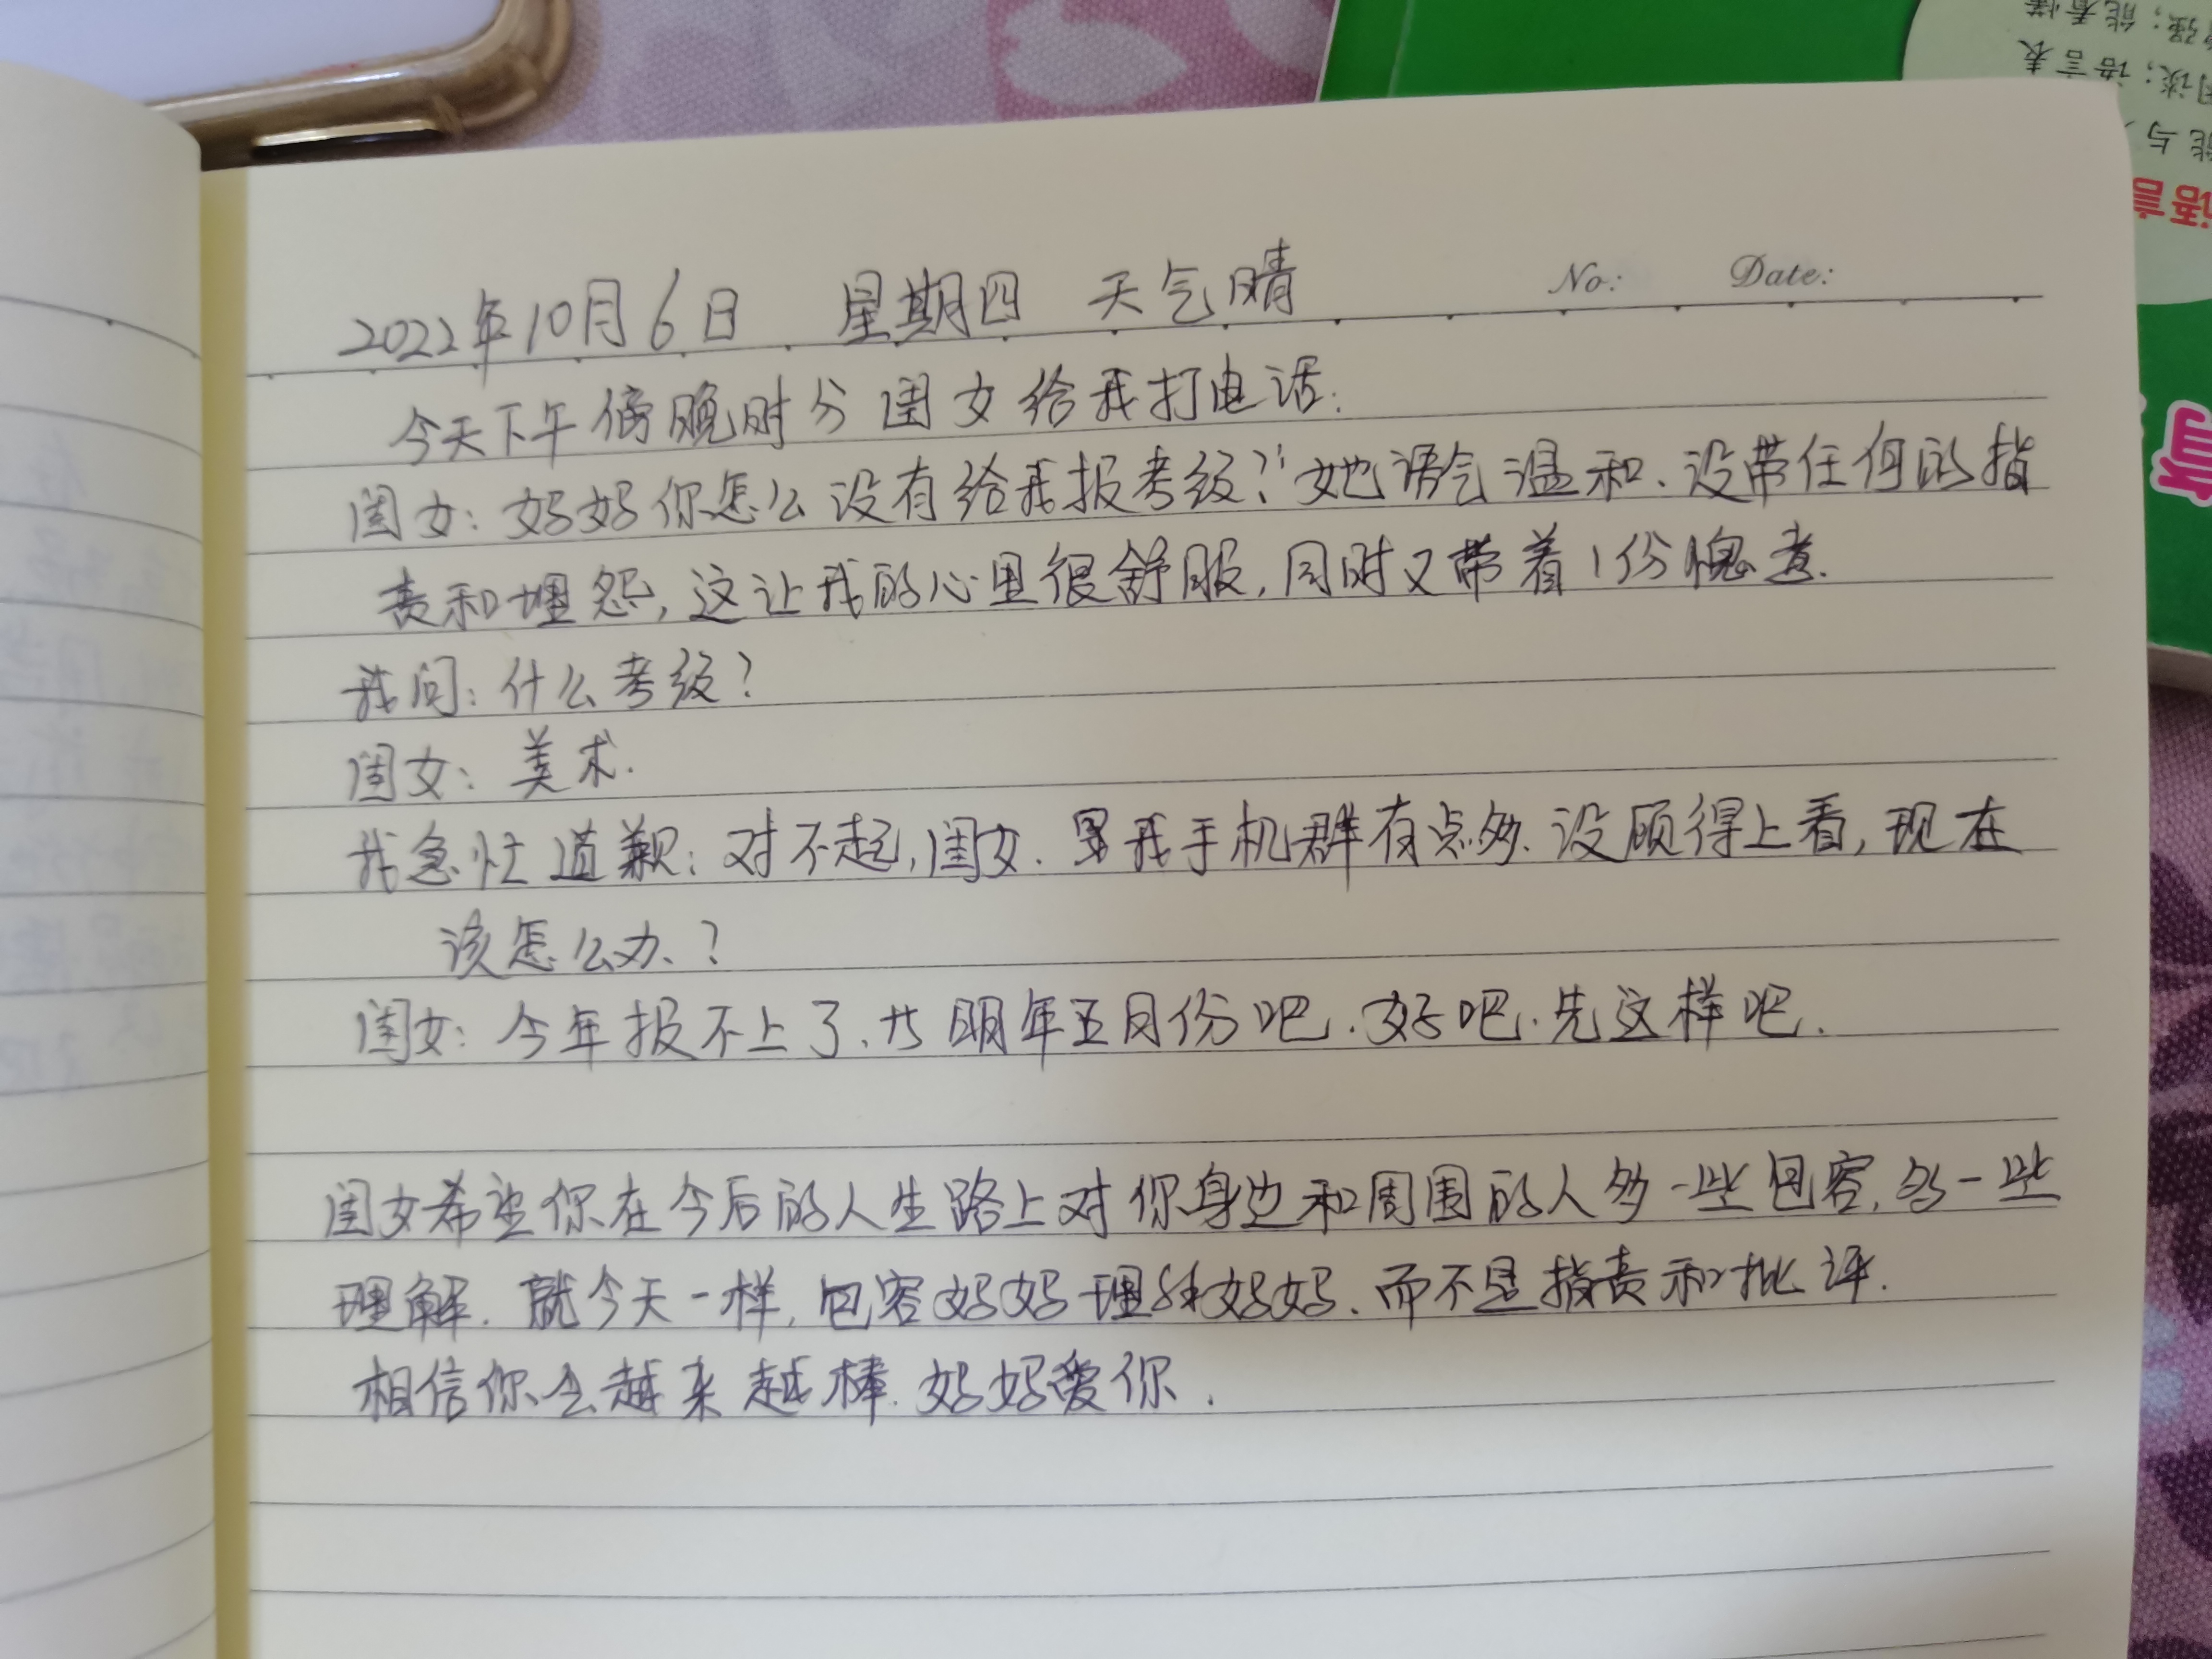 2022年10月6日 星期四 天气晴
No: Date:
今天下午傍晚时分闺女给我打电话:
闺女:妈妈你怎么没有给我报考级?"她语气温和.没带任何的指
责和埋怨,这让我的心里很舒服,同时又带着1份愧意.
我问:什么考级?
闺女:美术.
我急忙道歉:对不起,闺女.我手机群有点多.没顾得上看,现在
该怎么办.?
闺女:今年报不上了.明年五月份吧.好吧.先这样吧.
闺女希望你在今后的人生路上对你身边和周围的人多一些包容,多一些
理解.就今天一样,包容妈妈理解妈妈.而不是指责和批评.
相信你会越来越棒.妈妈爱你.
能看懂
语言表
能与
语言